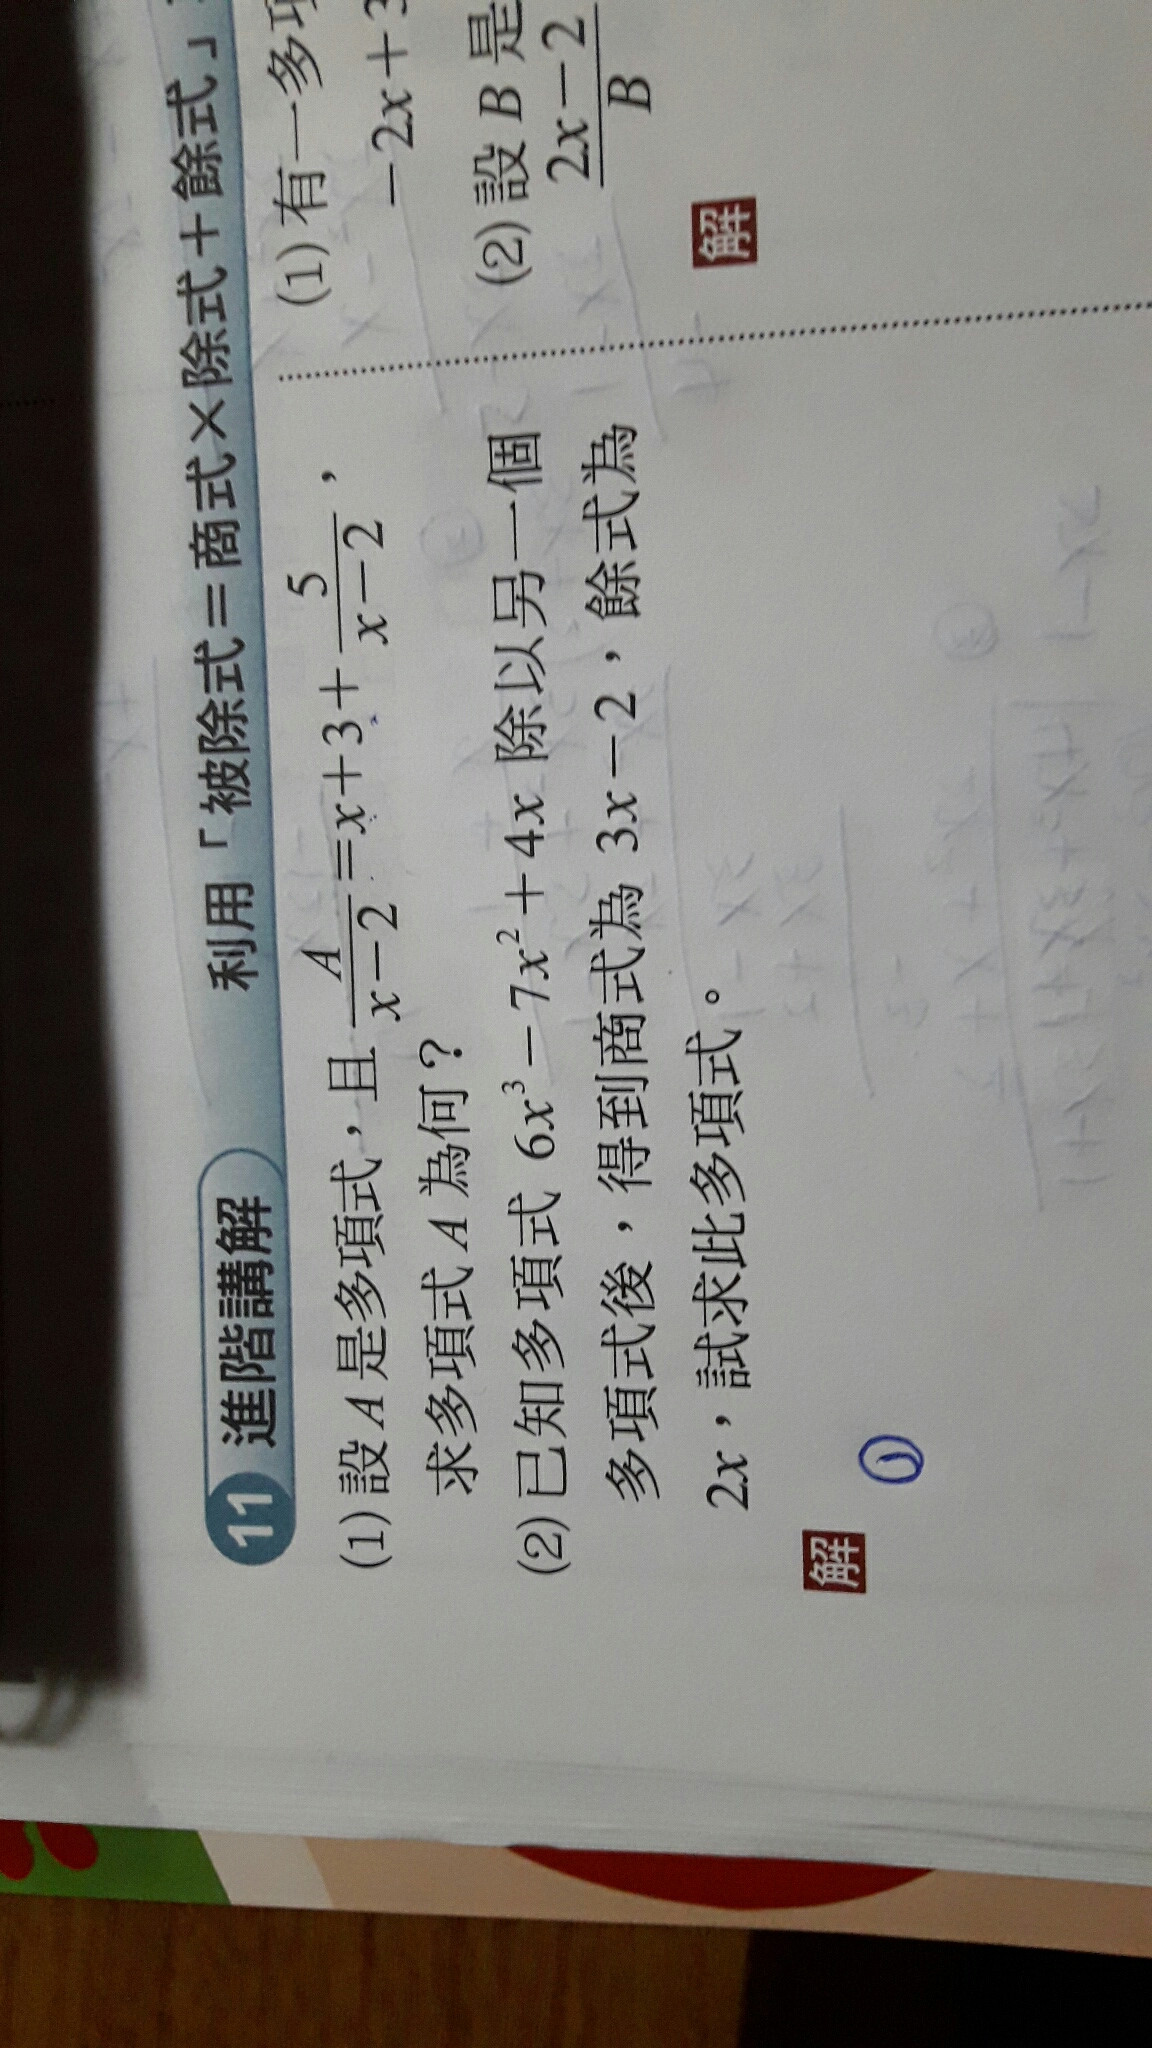 11 進階講解 利用「被除式=商式×除式+餘式」
(1) 設 A 是多項式,且 A/(x-2) = x+3+ 5/(x-2),
求多項式 A 為何?
(2) 已知多項式 6x³-7x²+4x 除以另一個
多項式後,得到商式為 3x-2,餘式為
2x,試求此多項式。
解
①
(1) 有一多
-2x+3
(2) 設 B 是
2x-2
B
解